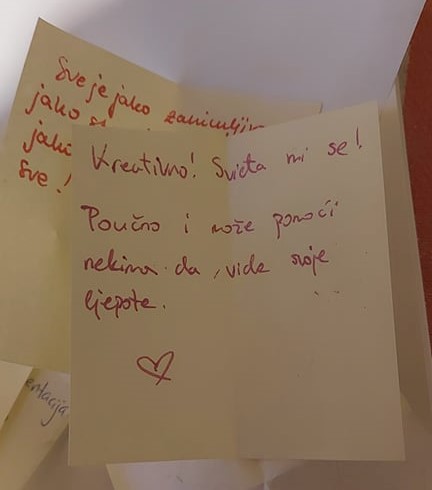 Sve je jako zanimljivo
jako
jako
Sve!
Kreativno! Sviđa mi se!
Poučno i može pomoći
nekima da vide svoje
ljepote.
entacija